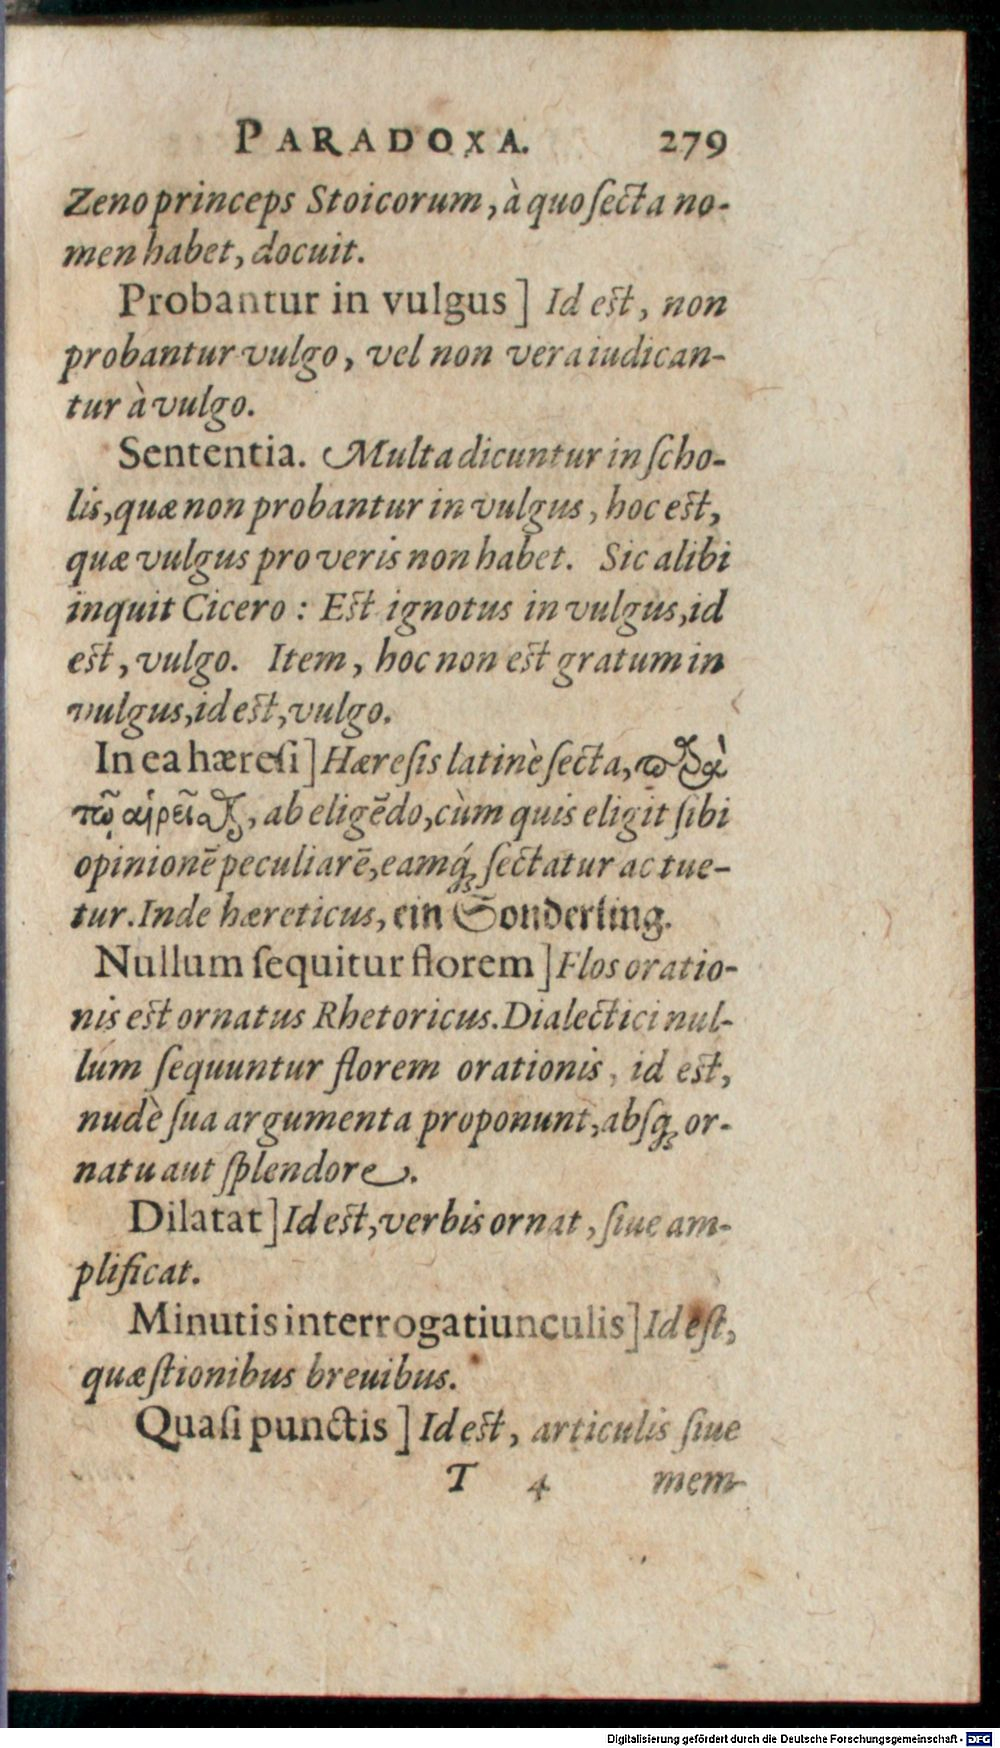 PARADOXA. 279
Zeno princeps Stoicorum, à quo ſecta no-
men habet, docuit.
Probantur in vulgus] Id est, non
probantur vulgo, vel non vera iudican-
tur à vulgo.
Sententia. Multa dicuntur in ſcho-
lis, quæ non probantur in vulgus, hoc est,
quæ vulgus pro veris non habet. Sic alibi
inquit Cicero: Est ignotus in vulgus, id
est, vulgo. Item, hoc non est gratum in
vulgus, id est, vulgo.
In ea hæreſi] Hæreſis latinè ſecta, παρὰ
τῶ αἱρεῖσθαι, ab eligẽdo, cùm quis eligit ſibi
opinionẽ peculiarẽ, eamq́ꝫ ſectatur ac tue-
tur. Inde hæreticus, ein Sonderling.
Nullum ſequitur florem] Flos oratio-
nis est ornatus Rhetoricus. Dialectici nul-
lum ſequuntur florem orationis, id est,
nudè ſua argumenta proponunt, abſqꝫ or-
natu aut ſplendore.
Dilatat] Id est, verbis ornat, ſiue am-
plificat.
Minutis interrogatiunculis] Id eſt,
quæſtionibus breuibus.
Quaſi punctis] Id est, articulis ſiue
T 4 mem-
Digitalisierung gefördert durch die Deutsche Forschungsgemeinschaft - DFG